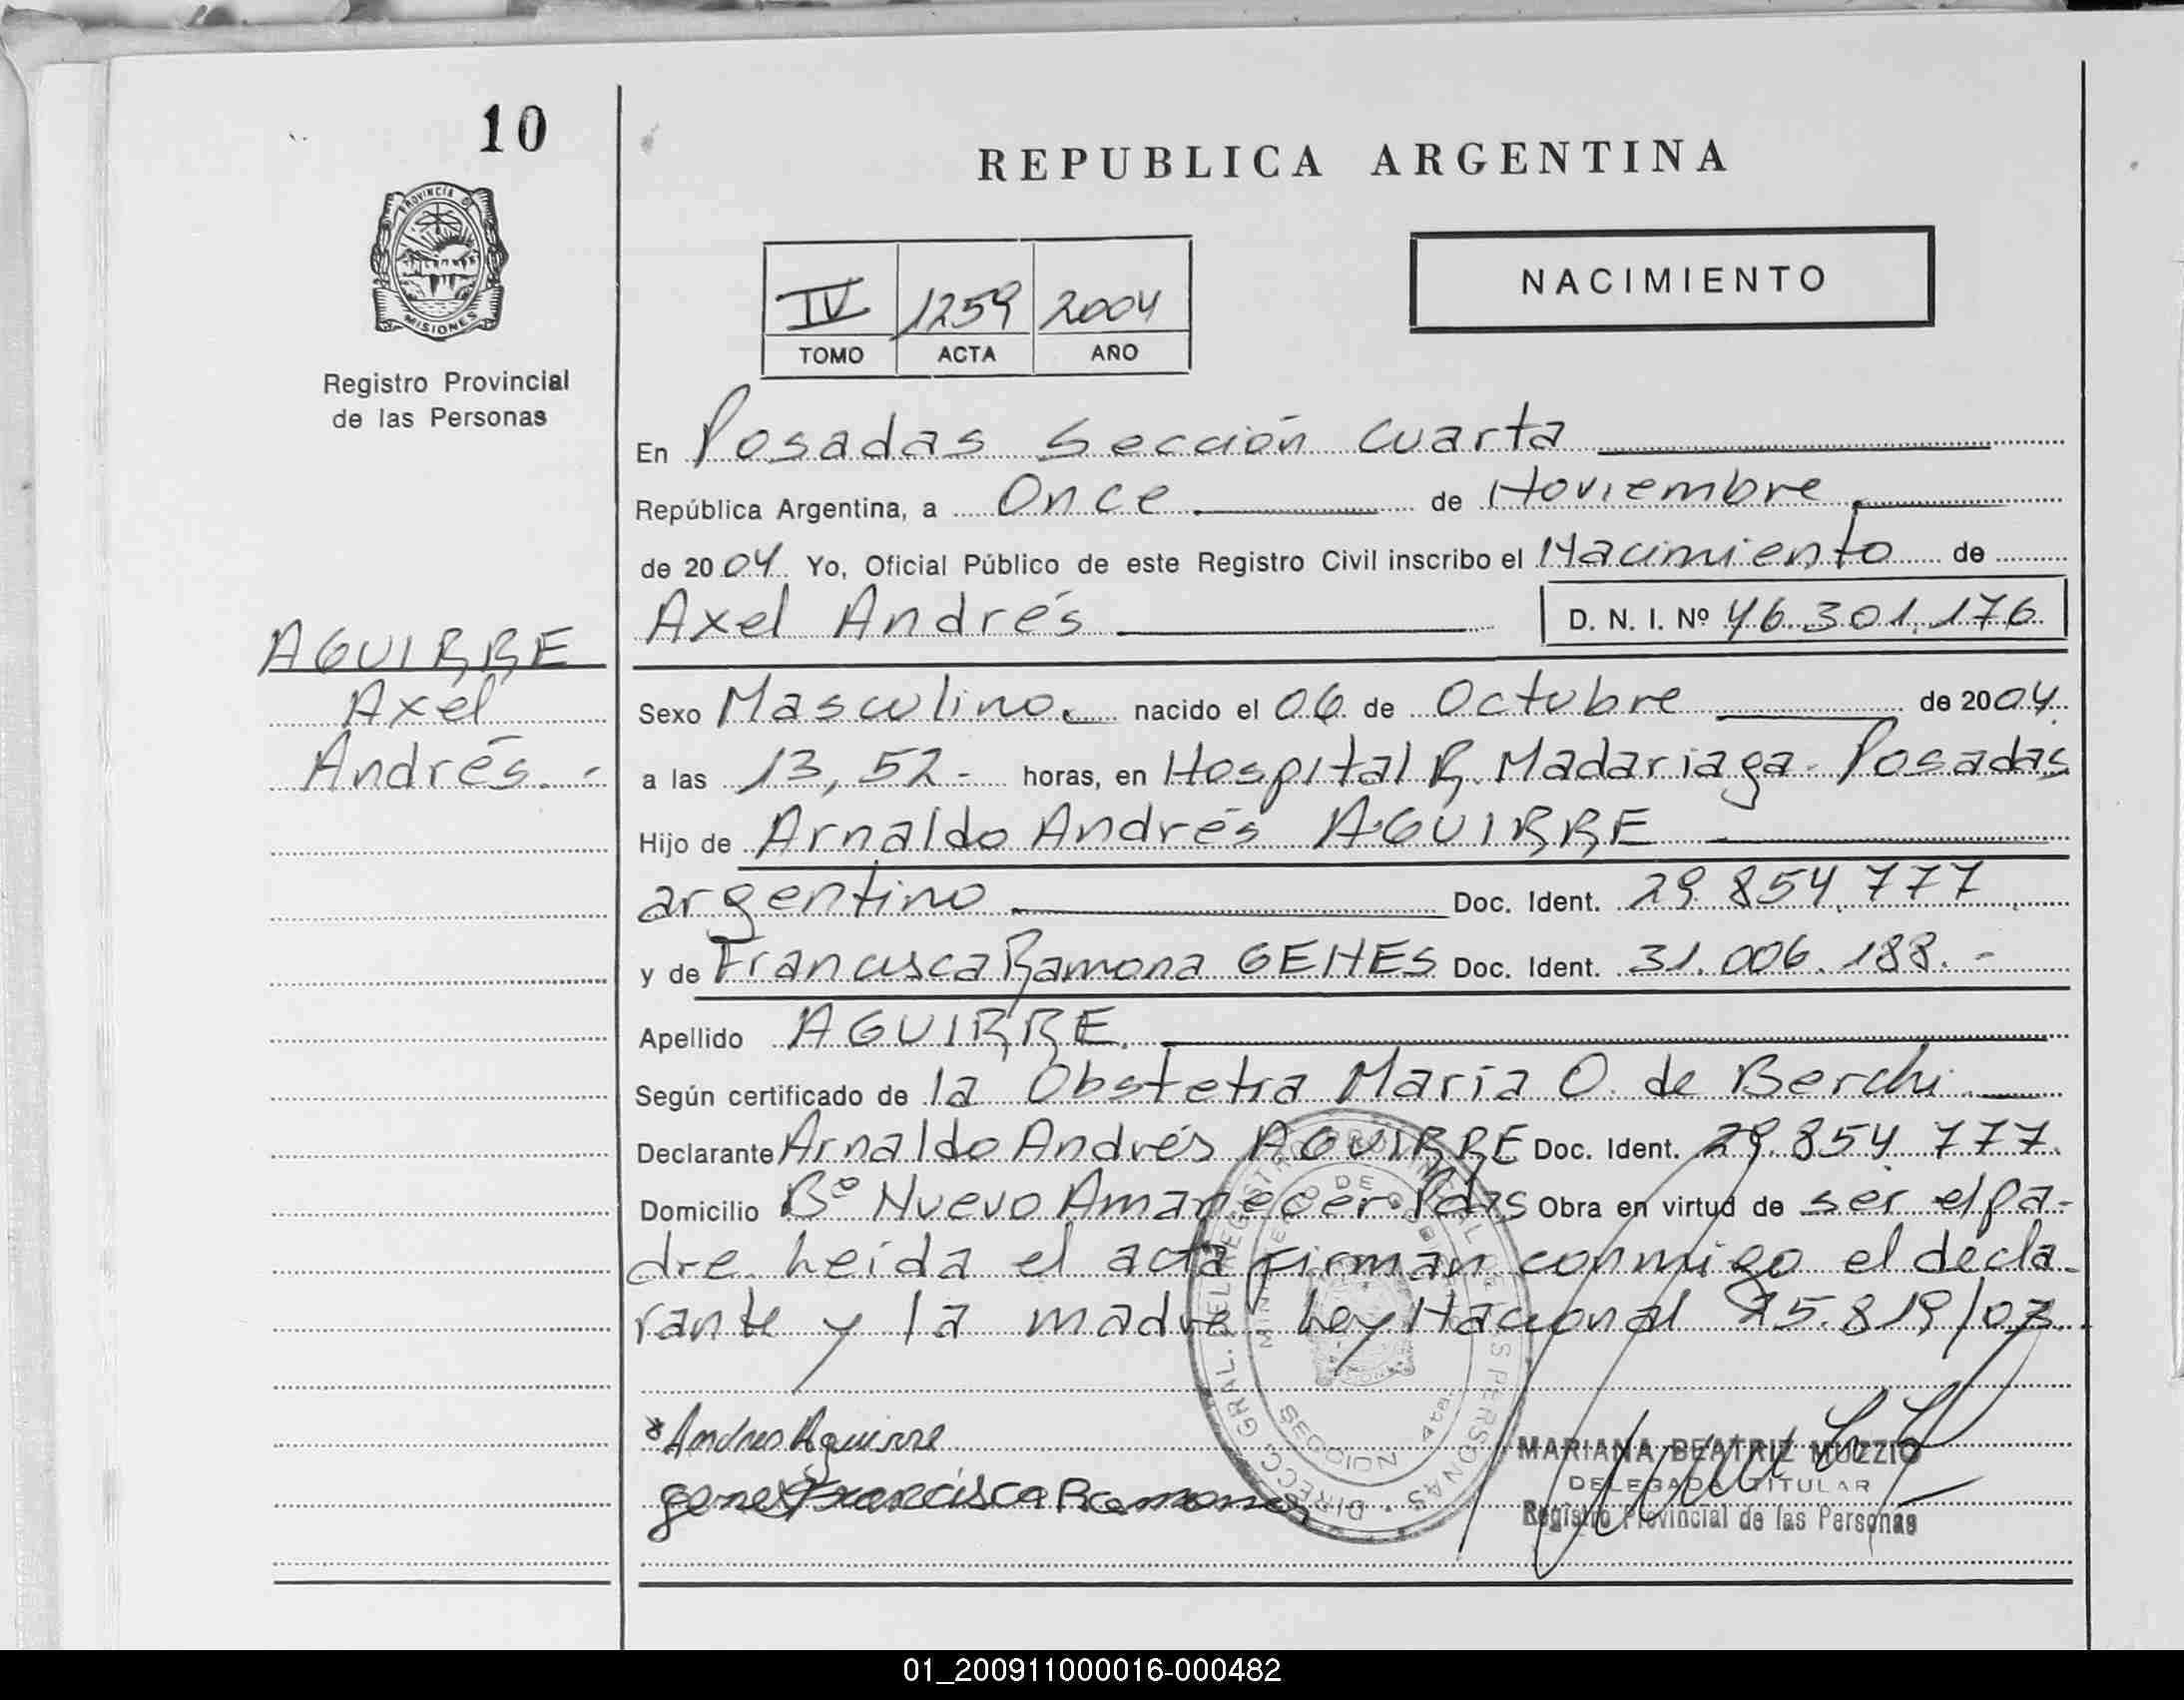 10
PROVINCIA D
MISIONES
Registro Provincial
de las Personas
AGUIRRE
Axel
Andrés.-
REPUBLICA ARGENTINA
IV 1259 2004
TOMO ACTA AÑO
NACIMIENTO
En Posadas Sección Cuarta
República Argentina, a Once de Noviembre
de 2004 Yo, Oficial Público de este Registro Civil inscribo el Nacimiento de
Axel Andrés D. N. I. Nº 46.301.176
Sexo Masculino. nacido el 06 de Octubre de 2004.
a las 13,52- horas, en Hospital R. Madariaga- Posadas
Hijo de Arnaldo Andrés AGUIRRE
argentino Doc. Ident. 29.854.777
y de Francisca Ramona GENES Doc. Ident. 31.006.188.-
Apellido AGUIRRE.
Según certificado de la Obstetra María O. de Berchi
Declarante Arnaldo Andrés AGUIRRE Doc. Ident. 29.854.777.
Domicilio Bº Nuevo Amanecer Pdas Obra en virtud de ser el pa-
dre. Leida el acta firman conmigo el decla-
rante y la madre. Ley Nacional 25.819/03.
DIRECC. GRAL. DEL REGISTRO PROVINCIAL DE LAS PERSONAS
SECCION 4ta.
* Andres Aguirre
genes Francisca Ramona
MARIANA BEATRIZ MUZZIO
DELEGADA TITULAR
Registro Provincial de las Personas
01_200911000016-000482